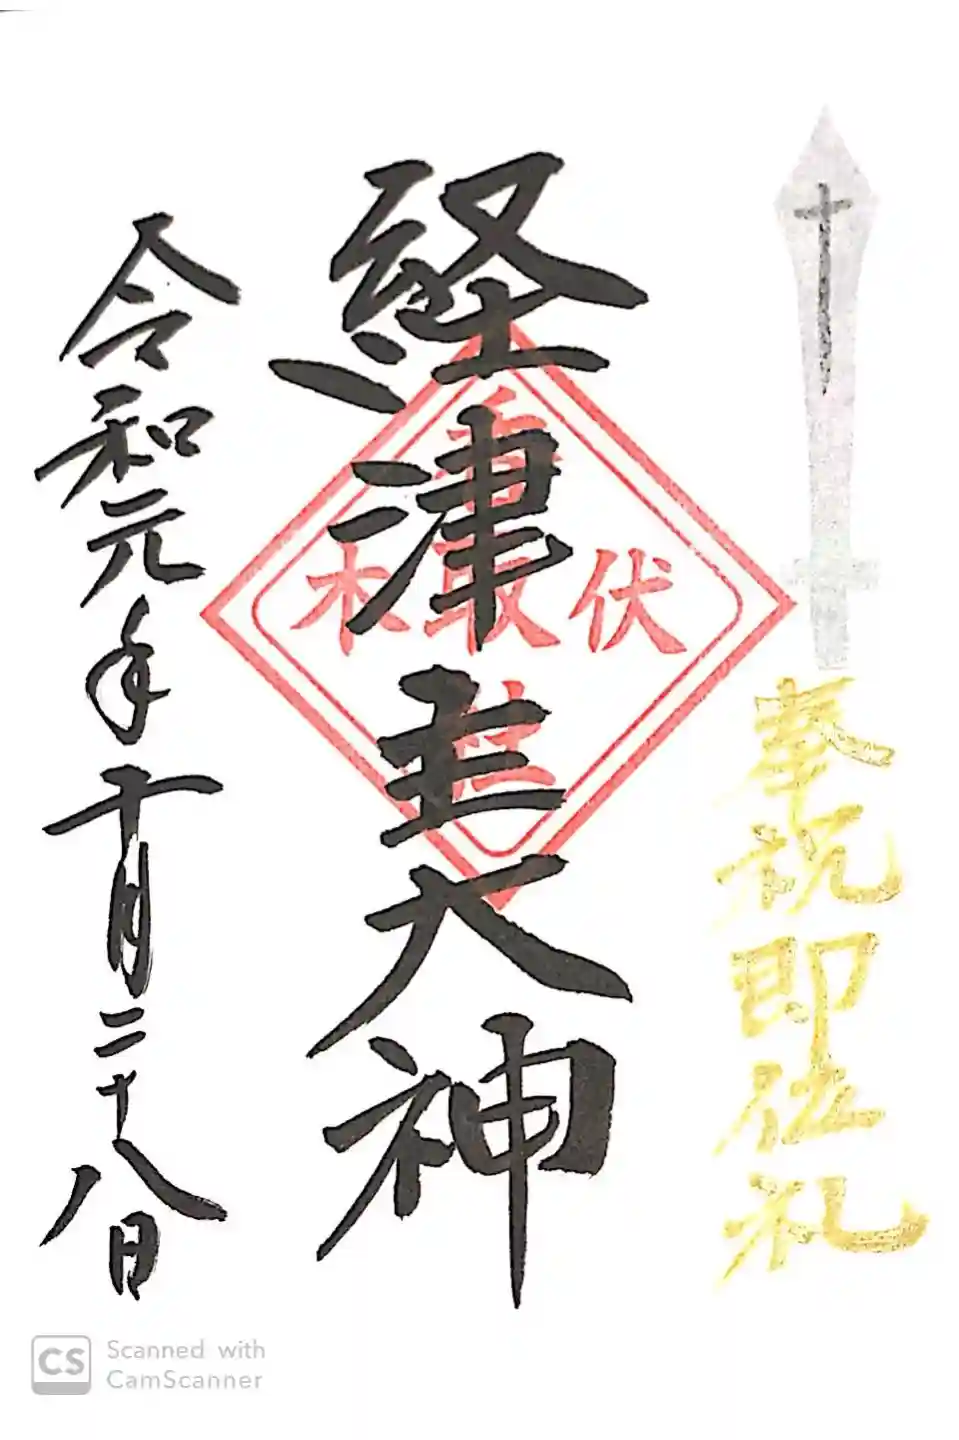 奉祝即位礼
経津主大神
伏木
香取社
令和元年十月二十八日
CS
Scanned with
CamScanner